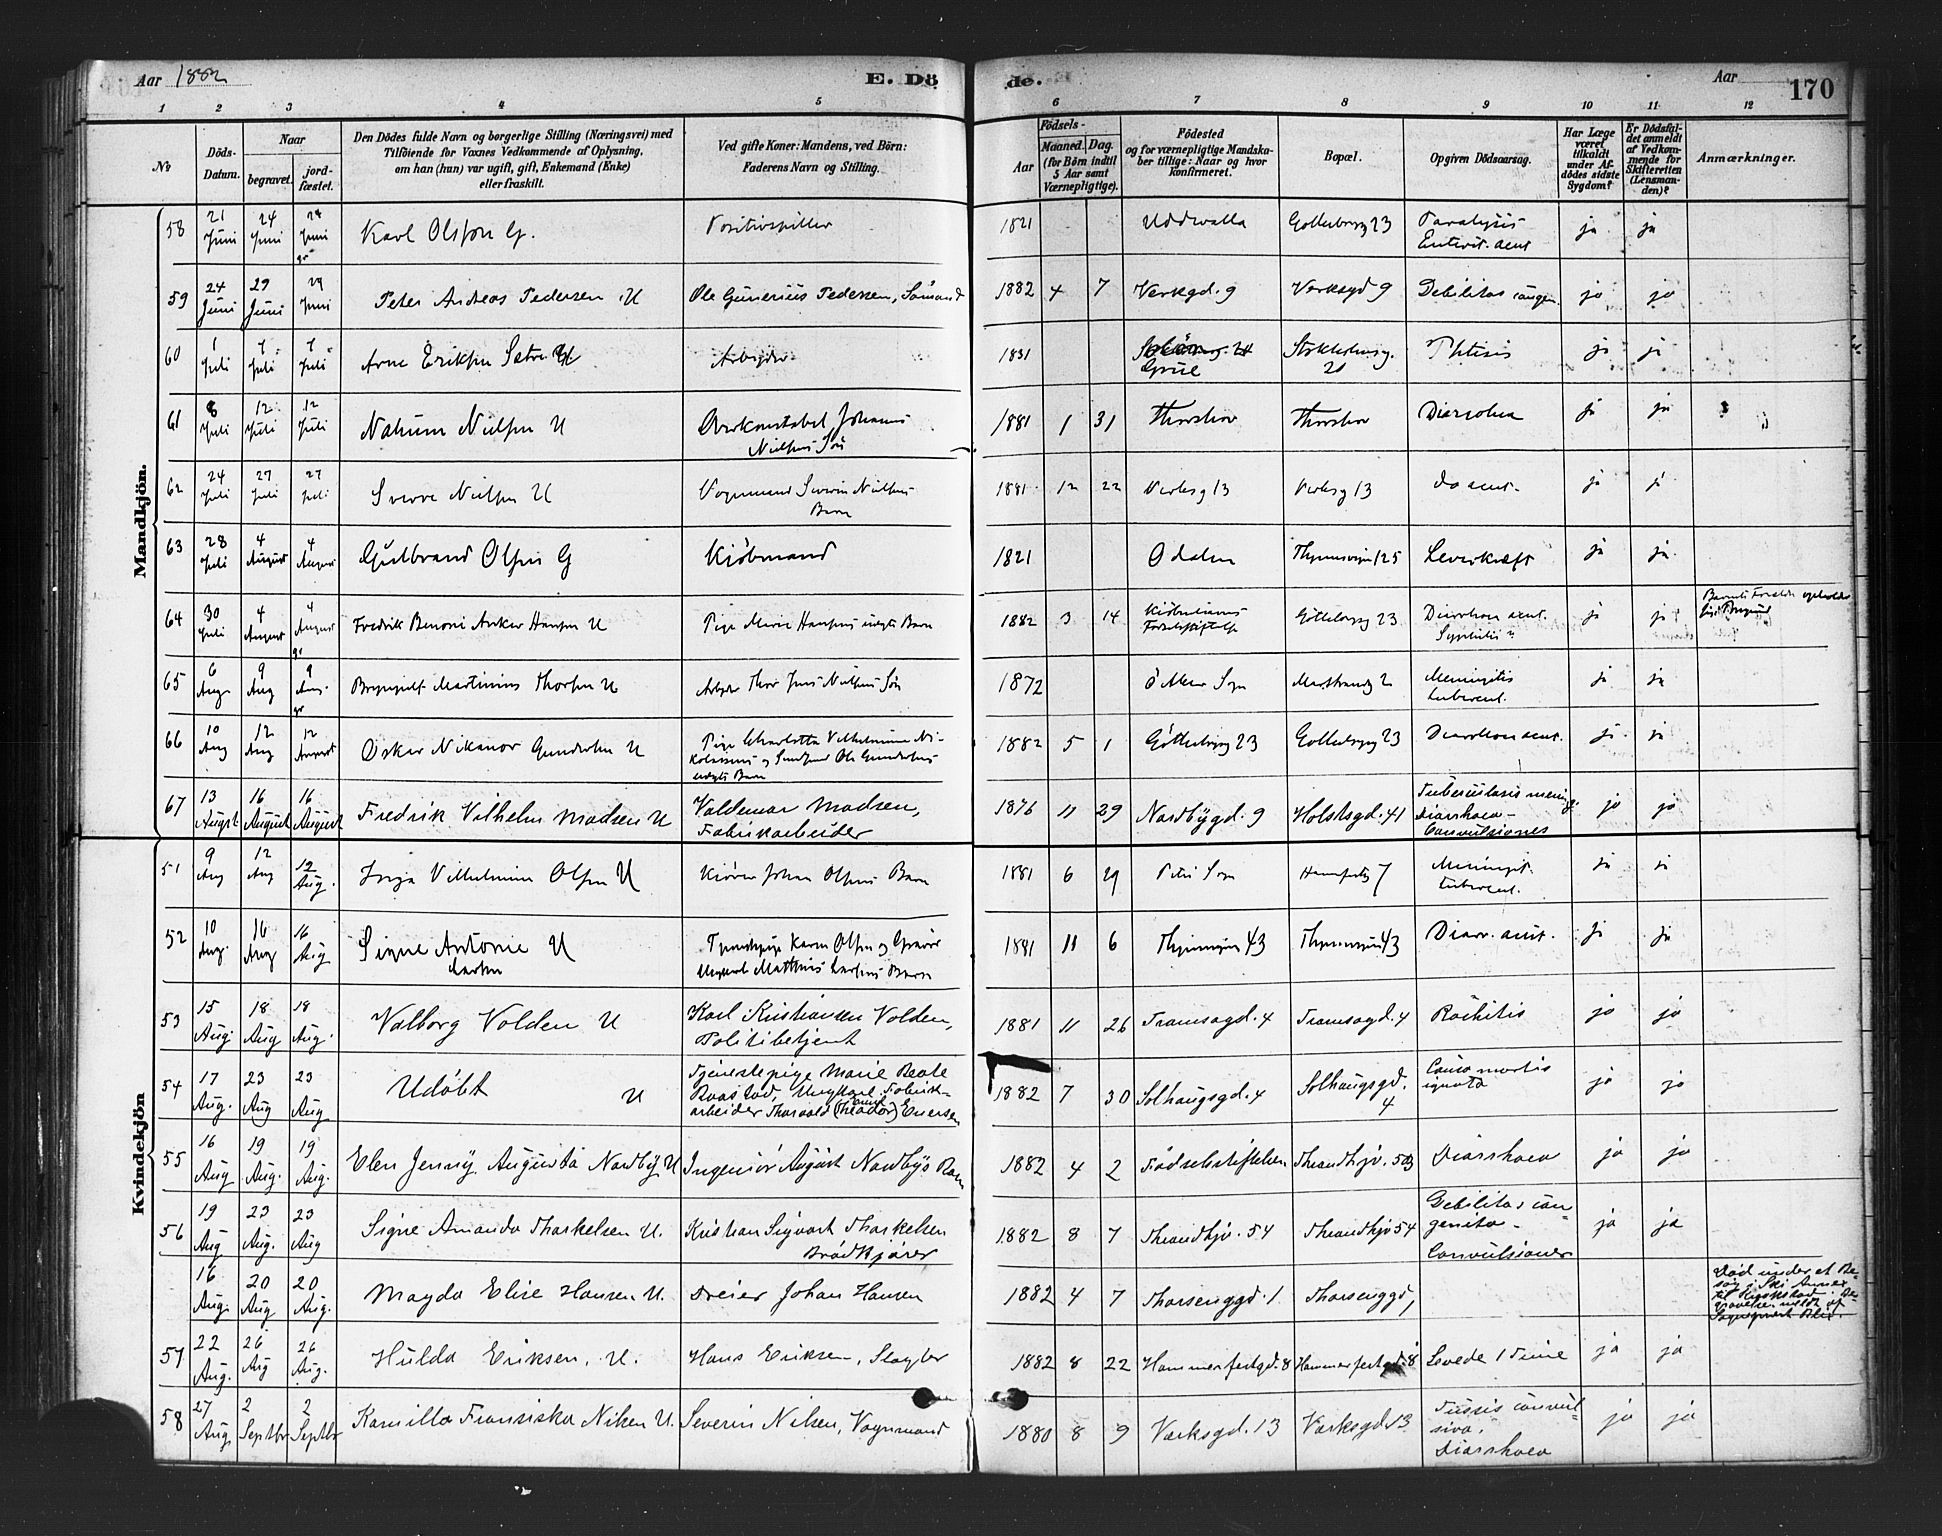 Aar 1882
E. Dö
de.
Aar
170
1 2 3 4 5 6 7 8 9 10 11 12
No
Döds-
Datum.
Naar
begravet.
jord-
fæstet.
Den Dödes fulde Navn og borgerlige Stilling (Næringsvei) med
Tilföiende for Voxnes Vedkommende af Oplysning,
om han (hun) var ugift, gift, Enkemand (Enke)
eller fraskilt.
Ved gifte Koner: Mandens, ved Börn:
Faderens Navn og Stilling.
Födsels-
Aar
Maaned. Dag.
(for Börn indtil
5 Aar samt
Værnepligtige).
Födested
og for værnepligtige Mandska-
ber tillige: Naar og hvor
konfirmeret.
Bopæl.
Opgiven Dödsaarsag.
Har Læge
været
tilkaldt
under Af-
dödes sidste
Sygdom?
Er Dödsfal-
det anmeldt
af Vedkom-
mende for
Skifteretten
(Lensman-
den)?
Anmærkninger.
Mandkjön.
58 21 Juni 24 Juni 24 Juni Karl Olsson G. Positivspiller 1821 Uddevalla Gotteborgg 23 Paralysis
Enterit. acut ja ja
59 24 Juni 29 Juni 29 Juni Peter Andreas Pedersen U Ole Gunerius Pedersen, Sömand 1882 4 7 Verksgd. 9 Verksgd 9 Debilitas congen. ja ja
60 1 Juli 7 Juli 7 Juli Arne Eriksen Arbeider 1831 Grue Stokholmsg.
21 Phtisis ja ja
61 8 Juli 12 Juli 12 Juli Nahum Nielsen U Overkonstabel Johannes
Nielsens Sön 1881 1 31 Thorshov Thorshov Diarrohea ja ja
62 24 Juli 27 Juli 27 Juli Sverre Nielsen U Vognmand Severin Nielsens
Barn 1881 12 22 Verksg 13 Verksg 13 do acut. ja ja
63 28 Juli 4 August 4 August Gulbrand Olsen G Kiöbmand 1821 Odalen 125 Leverkræft ja ja
64 30 Juli 4 August 4 August Fredrik Benoni Anker Hansen U Pige Marie Hansens uægte Barn 1882 3 14 Kristianias
Födselsstiftelse Gotteborgg 23 Diarrhoea acut.
Syphilis? ja ja
65 6 Aug 9 Aug 9 Aug. Martinius Thorsen U Arbeider Thor Jens Nielsens Sön 1872 Ö Aker Sogn Marstrandg 2 Meningitis
tubercul. ja ja
66 10 Aug 12 Aug 12 August Oskar Nikanor Gundersen U Pige Charlotte Vilhelmine Ni-
kolaisens og Ole Gundersens
uægte Barn 1882 5 1 Götteborgg 23 Gotteborgg 23 Diarrhoea acut. ja ja
67 13 August 16 August 16 August Fredrik Vilhelm Madsen U Valdemar Madsen,
Fabrikarbeider 1876 11 29 Nordbygd. 9 Holstsgd. 41 Tuberculosis mening.
Diarrhoea-
Convulsiones ja ja
Kvindekjön
51 9 Aug 12 Aug 12 Aug. Inga Vilhelmine Olsen U Kiörer Johan Olsens Barn 1881 6 29 Petri Sogn 7 Meningit.
tubercul. ja ja
52 10 Aug. 16 Aug 16 Aug Signe Antonie U
Larsen Tjenestepige Karen Olsen og
Ungkarl Matthias Larsens Barn 1881 11 6 43 43 Diarr. acut. ja ja
53 15 Aug. 18 Aug 18 Aug. Valborg Volden U Karl Kristiansen Volden,
Politibetjent 1881 11 26 Tromsogd. 4 Tromsogd. 4 Rachitis ja ja
54 17 Aug. 23 Aug 23 Aug Udöbt U Tjenestepige Marie Beate
Raastad, Ungkarl Fabrik-
arbeider Thorvald (Theodor) Eversen 1882 7 30 Solhaugsgd. 4 Solhaugsgd.
4 Causa mortis
ignota ja ja
55 16 Aug 19 Aug. 19 Aug. Elen Jenny Augusta Nordby U Ingeniör August Nordbys Barn 1882 4 2 Födselsstiftelsen Throndhjv. 50 Diarrhoea ja ja
56 19 Aug 23 Aug. 23 Aug Signe Amanda Thorkelsen U. Kristian Sigvart Thorkelsen
Brödkjörer 1882 8 7 Throndhjv. 54 Throndhjv 54 Debilitas con-
genita-
Convulsioner ja ja
16 Aug. 20 Aug 20 Aug. Magda Elise Hansen U. Dreier Johan Hansen 1882 4 7 Thorsenggd. 1 Thorsenggd, Död under et Be-
søg i Ski Annex
til Kraakstad. Be-
gravelsen meldt af
Sognepræst
57 22 Aug. 26 Aug 26 Aug. Hulda Eriksen, U. Hans Eriksen, Slagter 1882 8 22 Hammerfestgd. 8 Hammerfestgd. 8 Levede 1 Time ja ja
58 27 Aug. 2 Septbr 2 Septbr Kamilla Fransiska Nilsen U. Severin Nilsen, Vognmand 1880 8 9 Verksgd. 13 Verksgd. 13 Tussis convul-
siva.
Diarrhoea ja ja